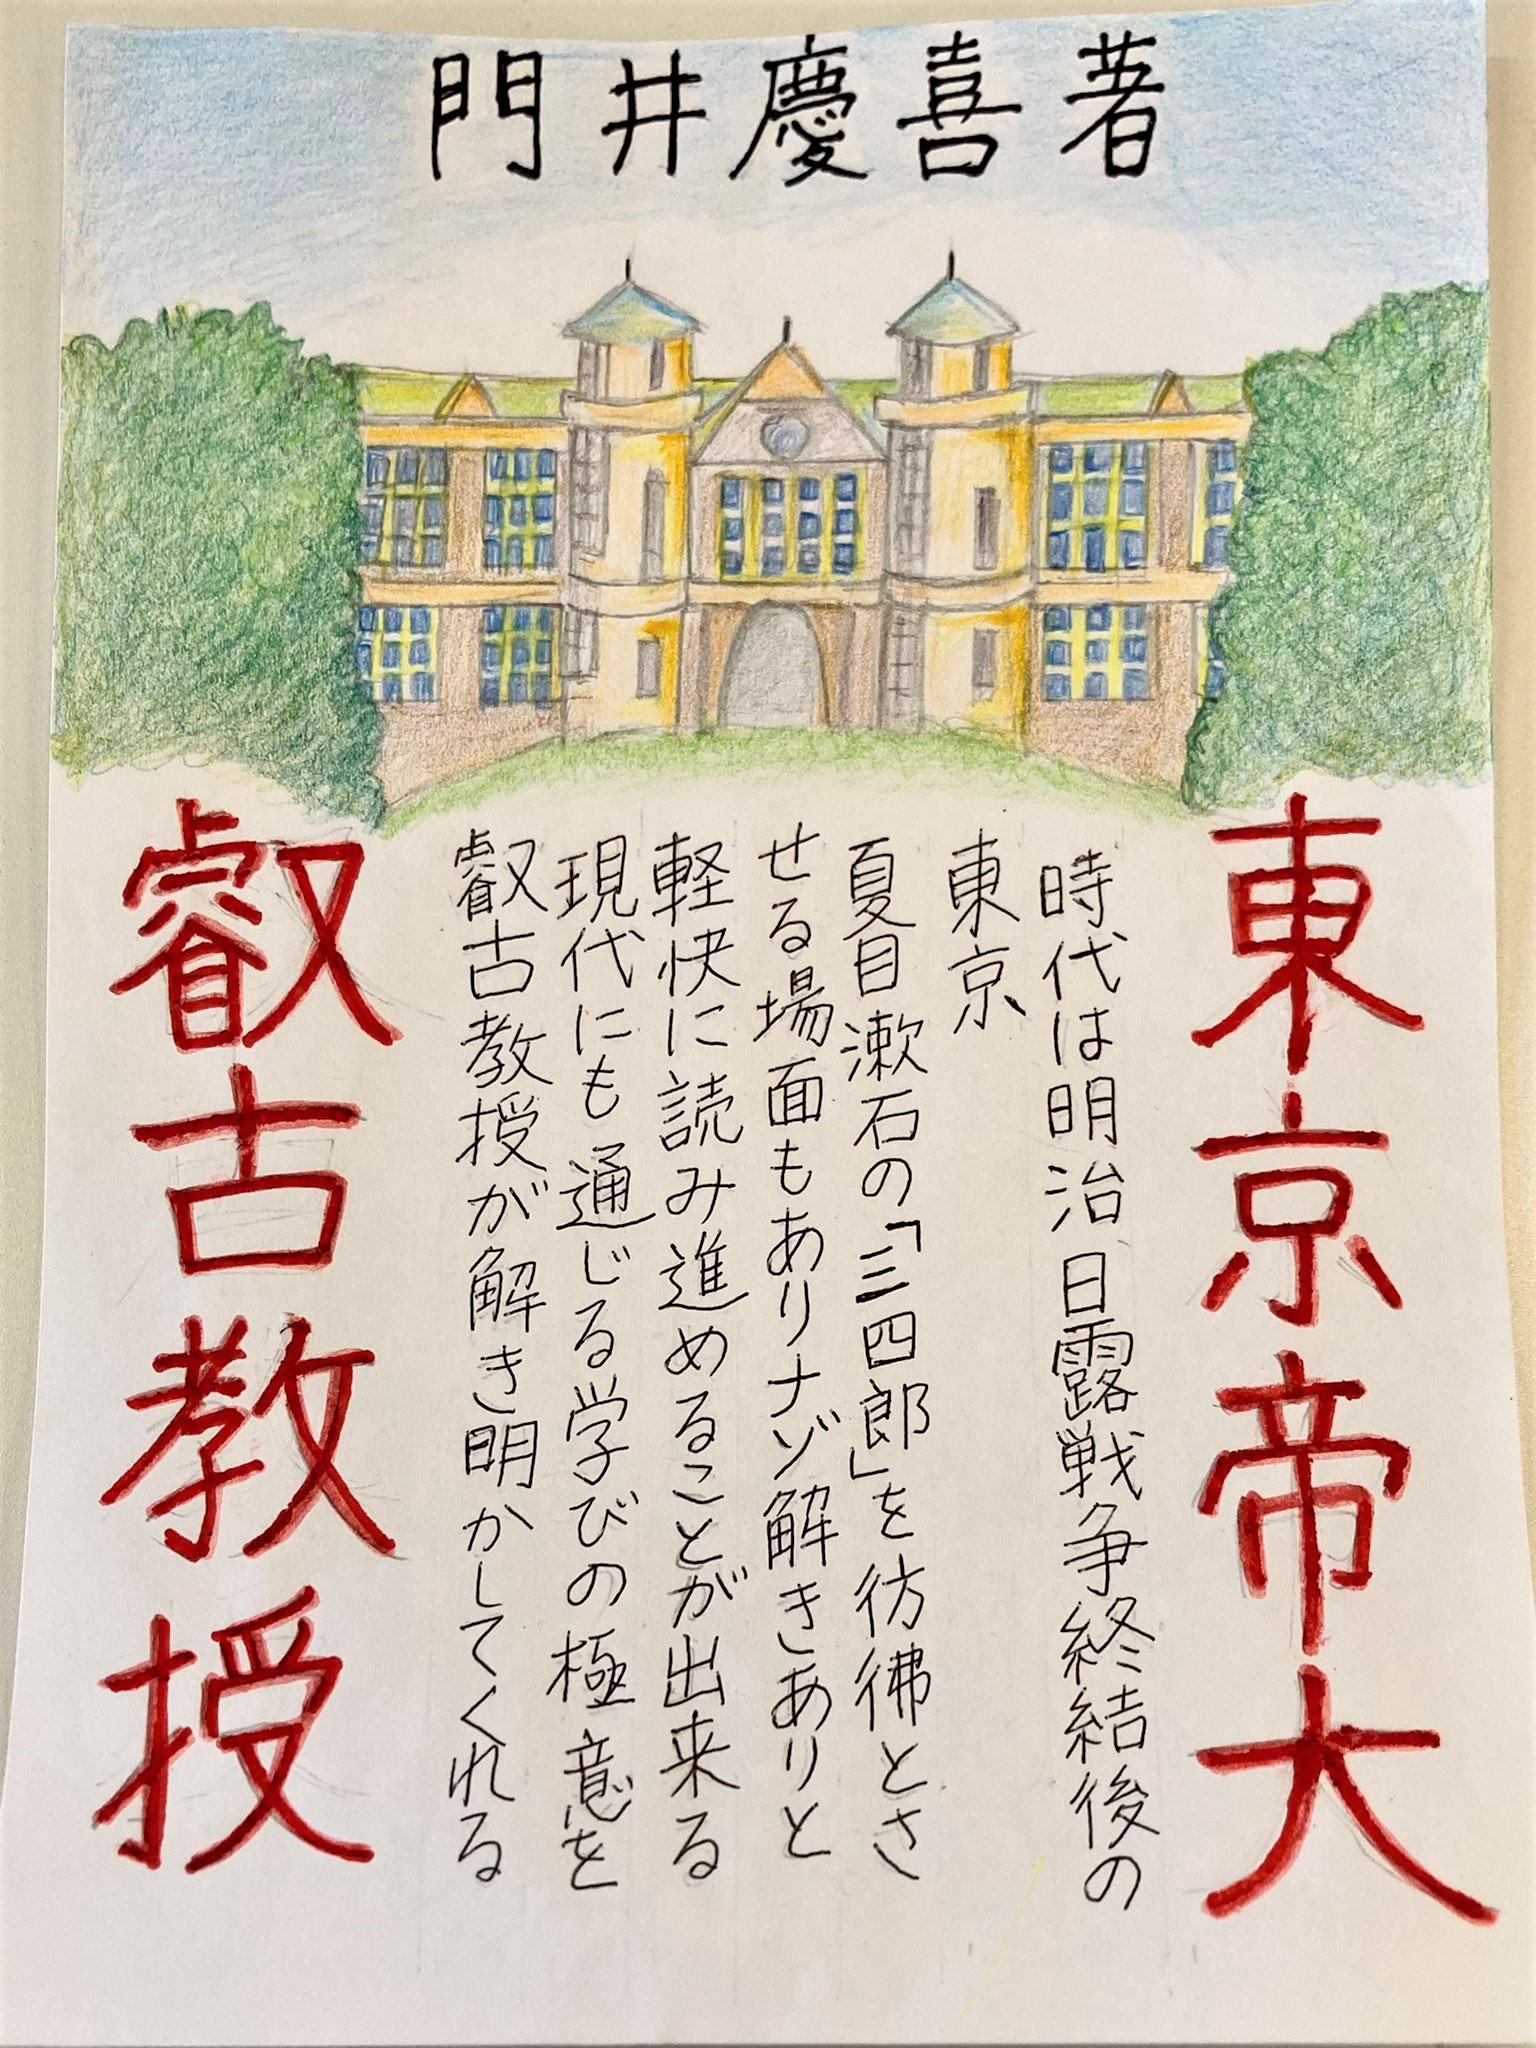 門井慶喜著
東京帝大
時代は明治 日露戦争終結後の
東京
夏目漱石の「三四郎」を彷彿とさ
せる場面もありナゾ解きありと
軽快に読み進めることが出来る
現代にも通じる学びの極意を
叡古教授が解き明かしてくれる
叡古教授